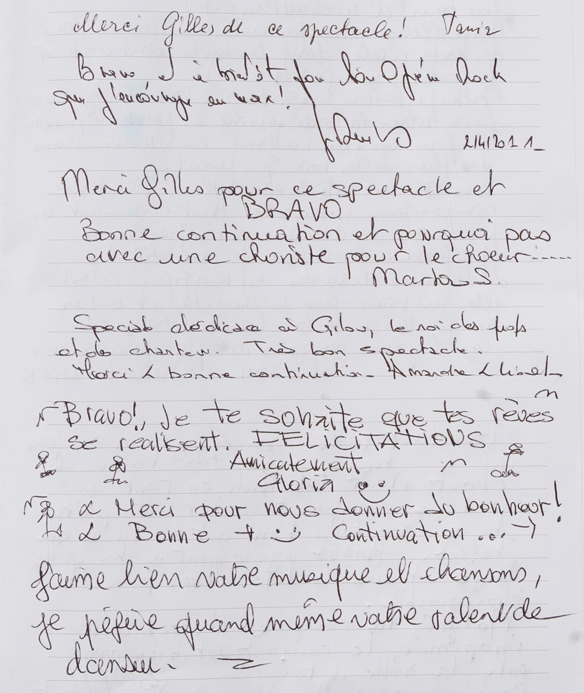 Merci Gilles de ce spectacle!
Bravo et à bientôt Opéra Rock
que j'encourage au max!
2/4/2011
Merci Gilles pour ce spectacle et
BRAVO
Bonne continuation et pourquoi pas
avec une choriste pour le choeur.....
Marta S.
Special dédicace à Gilou, le roi des
et des chanteurs. Très bon spectacle.
Merci & bonne continuation - Amandine & Lionel
Bravo!, Je te sohaite que tes rêves
se réalisent. FELICITATIONS
Amicalement
Gloria
& Merci pour nous donner du bonheur!
& Bonne + Continuation ...
J'aime bien votre musique et chansons,
je péfère quand même votre talent de
danseur.